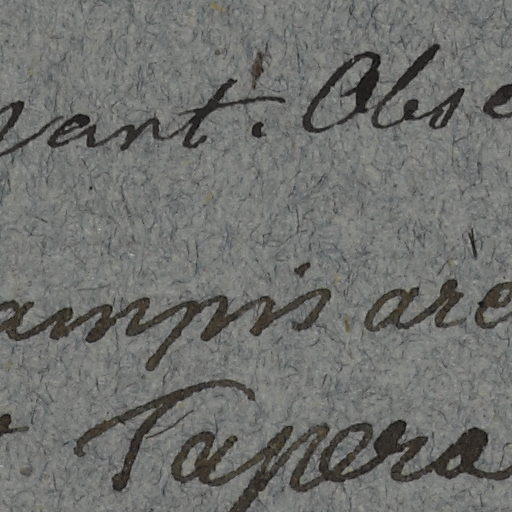 vant. Obse
ampis are
Tapera